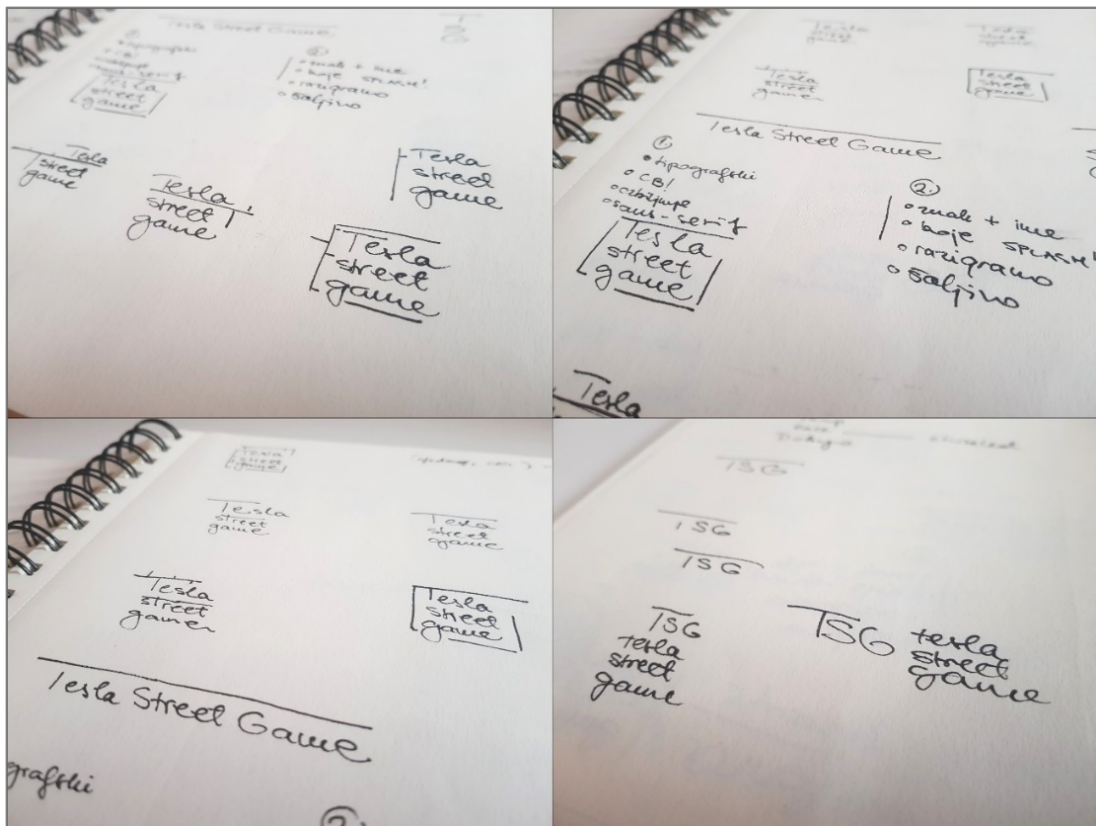 Tesla Street Game
①
• tipografski
• CB!
• sans-serif
Tesla
street
game
②
• znak + ime
• boje SPLASH!
• razigrano
• šaljivo
T
S
G
Tesla
street
game
Tesla
street
game
Tesla
street
game
Tesla
street
game
Tesla
street
game
Tesla
street
game
Tesla
street
game
Tesla
street
game
Tesla Street Game
①
• tipografski
• CB!
• ozbiljnije
• sans-serif
Tesla
street
game
②
• znak + ime
• boje SPLASH!
• razigrano
• šaljivo
Tesla
Tesla
street
game
Tesla
street
game
Tesla
street
game
Tesla
street
game
Tesla
street
game
Tesla Street Game
grafski
②
TSG
TSG
TSG
TSG
tesla
street
game
TSG
tesla
street
game